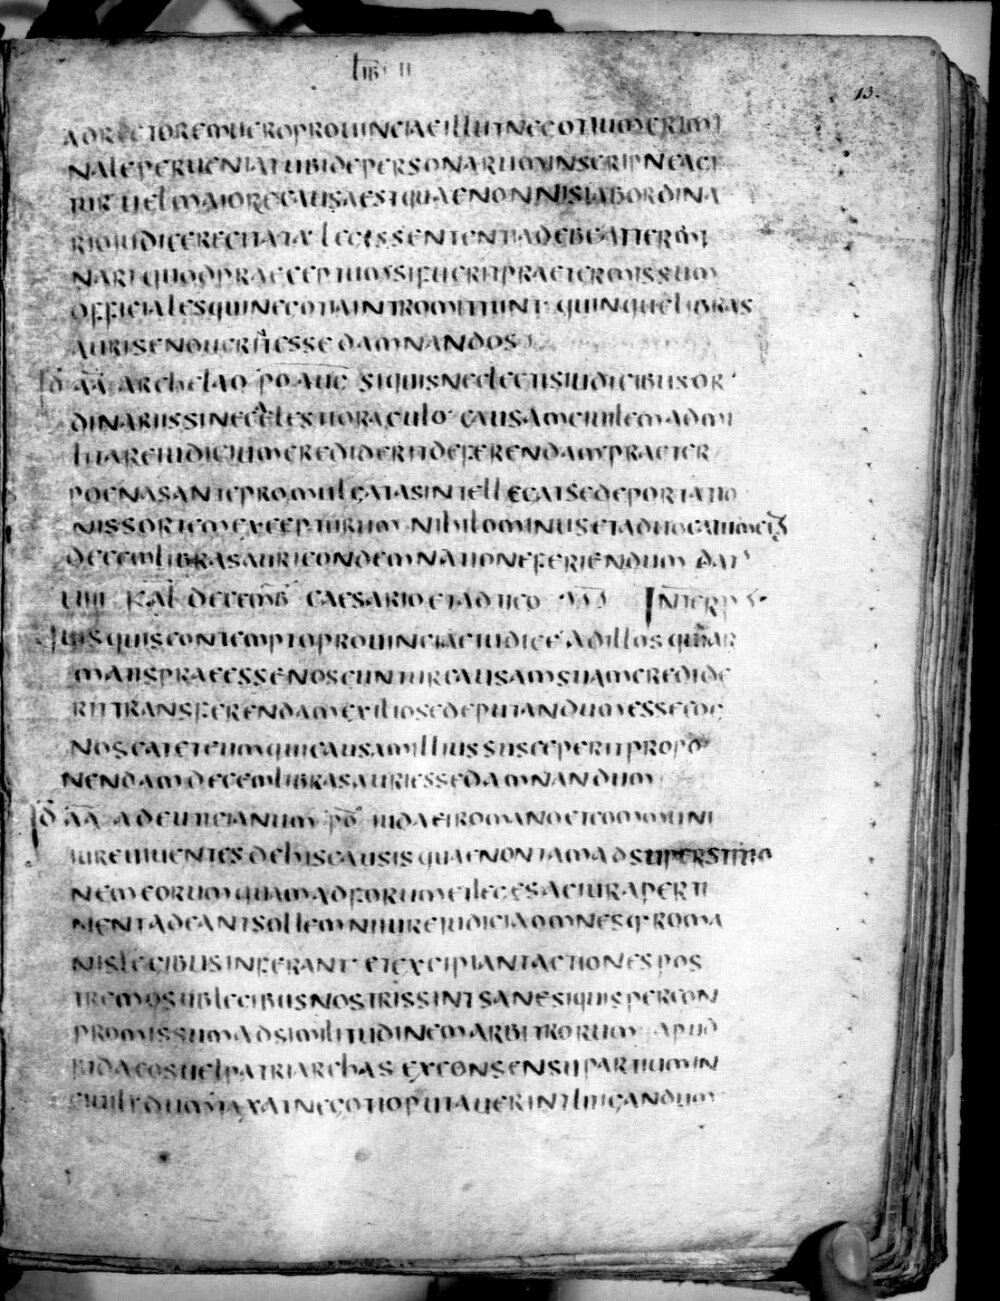 LIB II
13.
AD RECTOREM UERO PROUINCIAE ILLUT NEGOTIUM CRIMI
NALE PERUENIAT UBI DE PERSONARUM INSCRIPNE AGI
TUR UEL MAIORE CAUSA EST QUAE NON NISI AB ORDINA
RIO IUDICE RECITATA LEGIS SENTENTIA DEBEAT TERMI
NARI QUOD PRAECEPTUM SI FUERIT PRAETERMISSUM
OFFICIALES QUI NEGOTIA INTROMITTUNT QUINQUE LIBRAS
AURI SE NOUERIT ESSE DAMNANDOS
ID AA ARCHELAO PO AUG SI QUIS NEGLECTIS IUDICIBUS OR
DINARIIS SINE CAELESTI ORACULO CAUSAM CIUILEM AD MI
LITARE IUDICIUM CREDIDERIT DEFERENDAM PRAETER
POENAS ANTE PROMULGATAS INTELLEGAT SE DEPORTATIO
NIS SORTEM EXCEPTURUM NIHILOMINUS ET ADUOCATUM EIUS
DECEM LIBRAS AURI CONDEMNATIONE FERIENDUM DAT
UIIII KAL DECEMB CAESARIO ET ADTICO CSS INTERP
QUISQUIS CONTEMPTO PROUINCIAE IUDICE AD ILLOS QUI AR
MATIS PRAEESSE NOSCUNTUR CAUSAM SUAM CREDIDE
RIT TRANSFERENDAM EXILIO SE DEPUTANDUM ESSE COG
NOSCAT ET EUM QUI CAUSAM ILLIUS SUSCEPERIT PROPO
NENDAM DECEM LIBRAS AURI ESSE DAMNANDUM
ID AA AD EUTICIANUM PO IUDAEI ROMANO ET COMMUNI
IURE UIUENTES DE HIS CAUSIS QUAE NON TAM AD SUPERSTITIO
NEM EORUM QUAM AD FORUM EI LEGES AC IURA PERTI
NENT ADEANT SOLLEMNI IURE IUDICIA OMNESQ ROMA
NIS LEGIBUS INFERANT ET EXCIPIANT ACTIONES POS
TREMO SUB LEGIBUS NOSTRIS SINT SANE SI QUIS PER CON
PROMISSUM AD SIMILITUDINEM ARBITRORUM APUD
IUDAEOS UEL PATRIARCHAS EX CONSENSU PARTIUM IN
CIUILI DUMTAXAT NEGOTIO PUTAUERINT LITIGANDUM